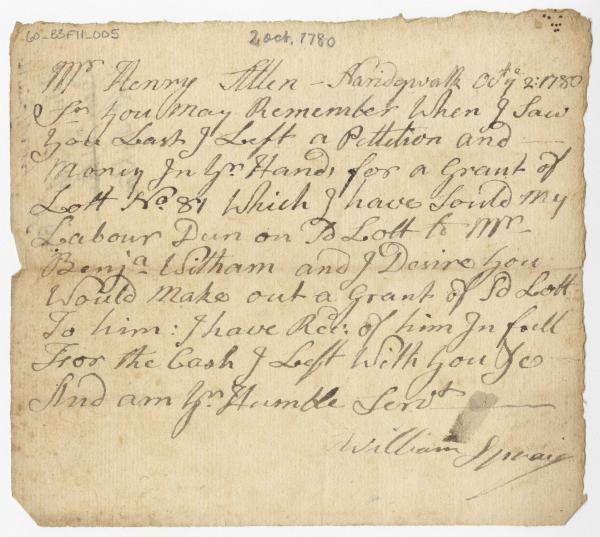 60_B3F11_005
2 oct. 1780
Mr Henry Allen - Naridgwalk Octr ye 2: 1780
Sr you may Remember When I Saw
you Last I Left a Pettition and
Money In yr Hands for a Grant of
Lott No. 81 Which I have Sould My
Labour Dun on Sd Lott to Mr
Benja. Witham and I Desire you
Would Make out a Grant of Sd Lott
To him: I have Recd: of him In full
Fror the Cash I Left With you &c
And am yr Humble Servt
William Spraig